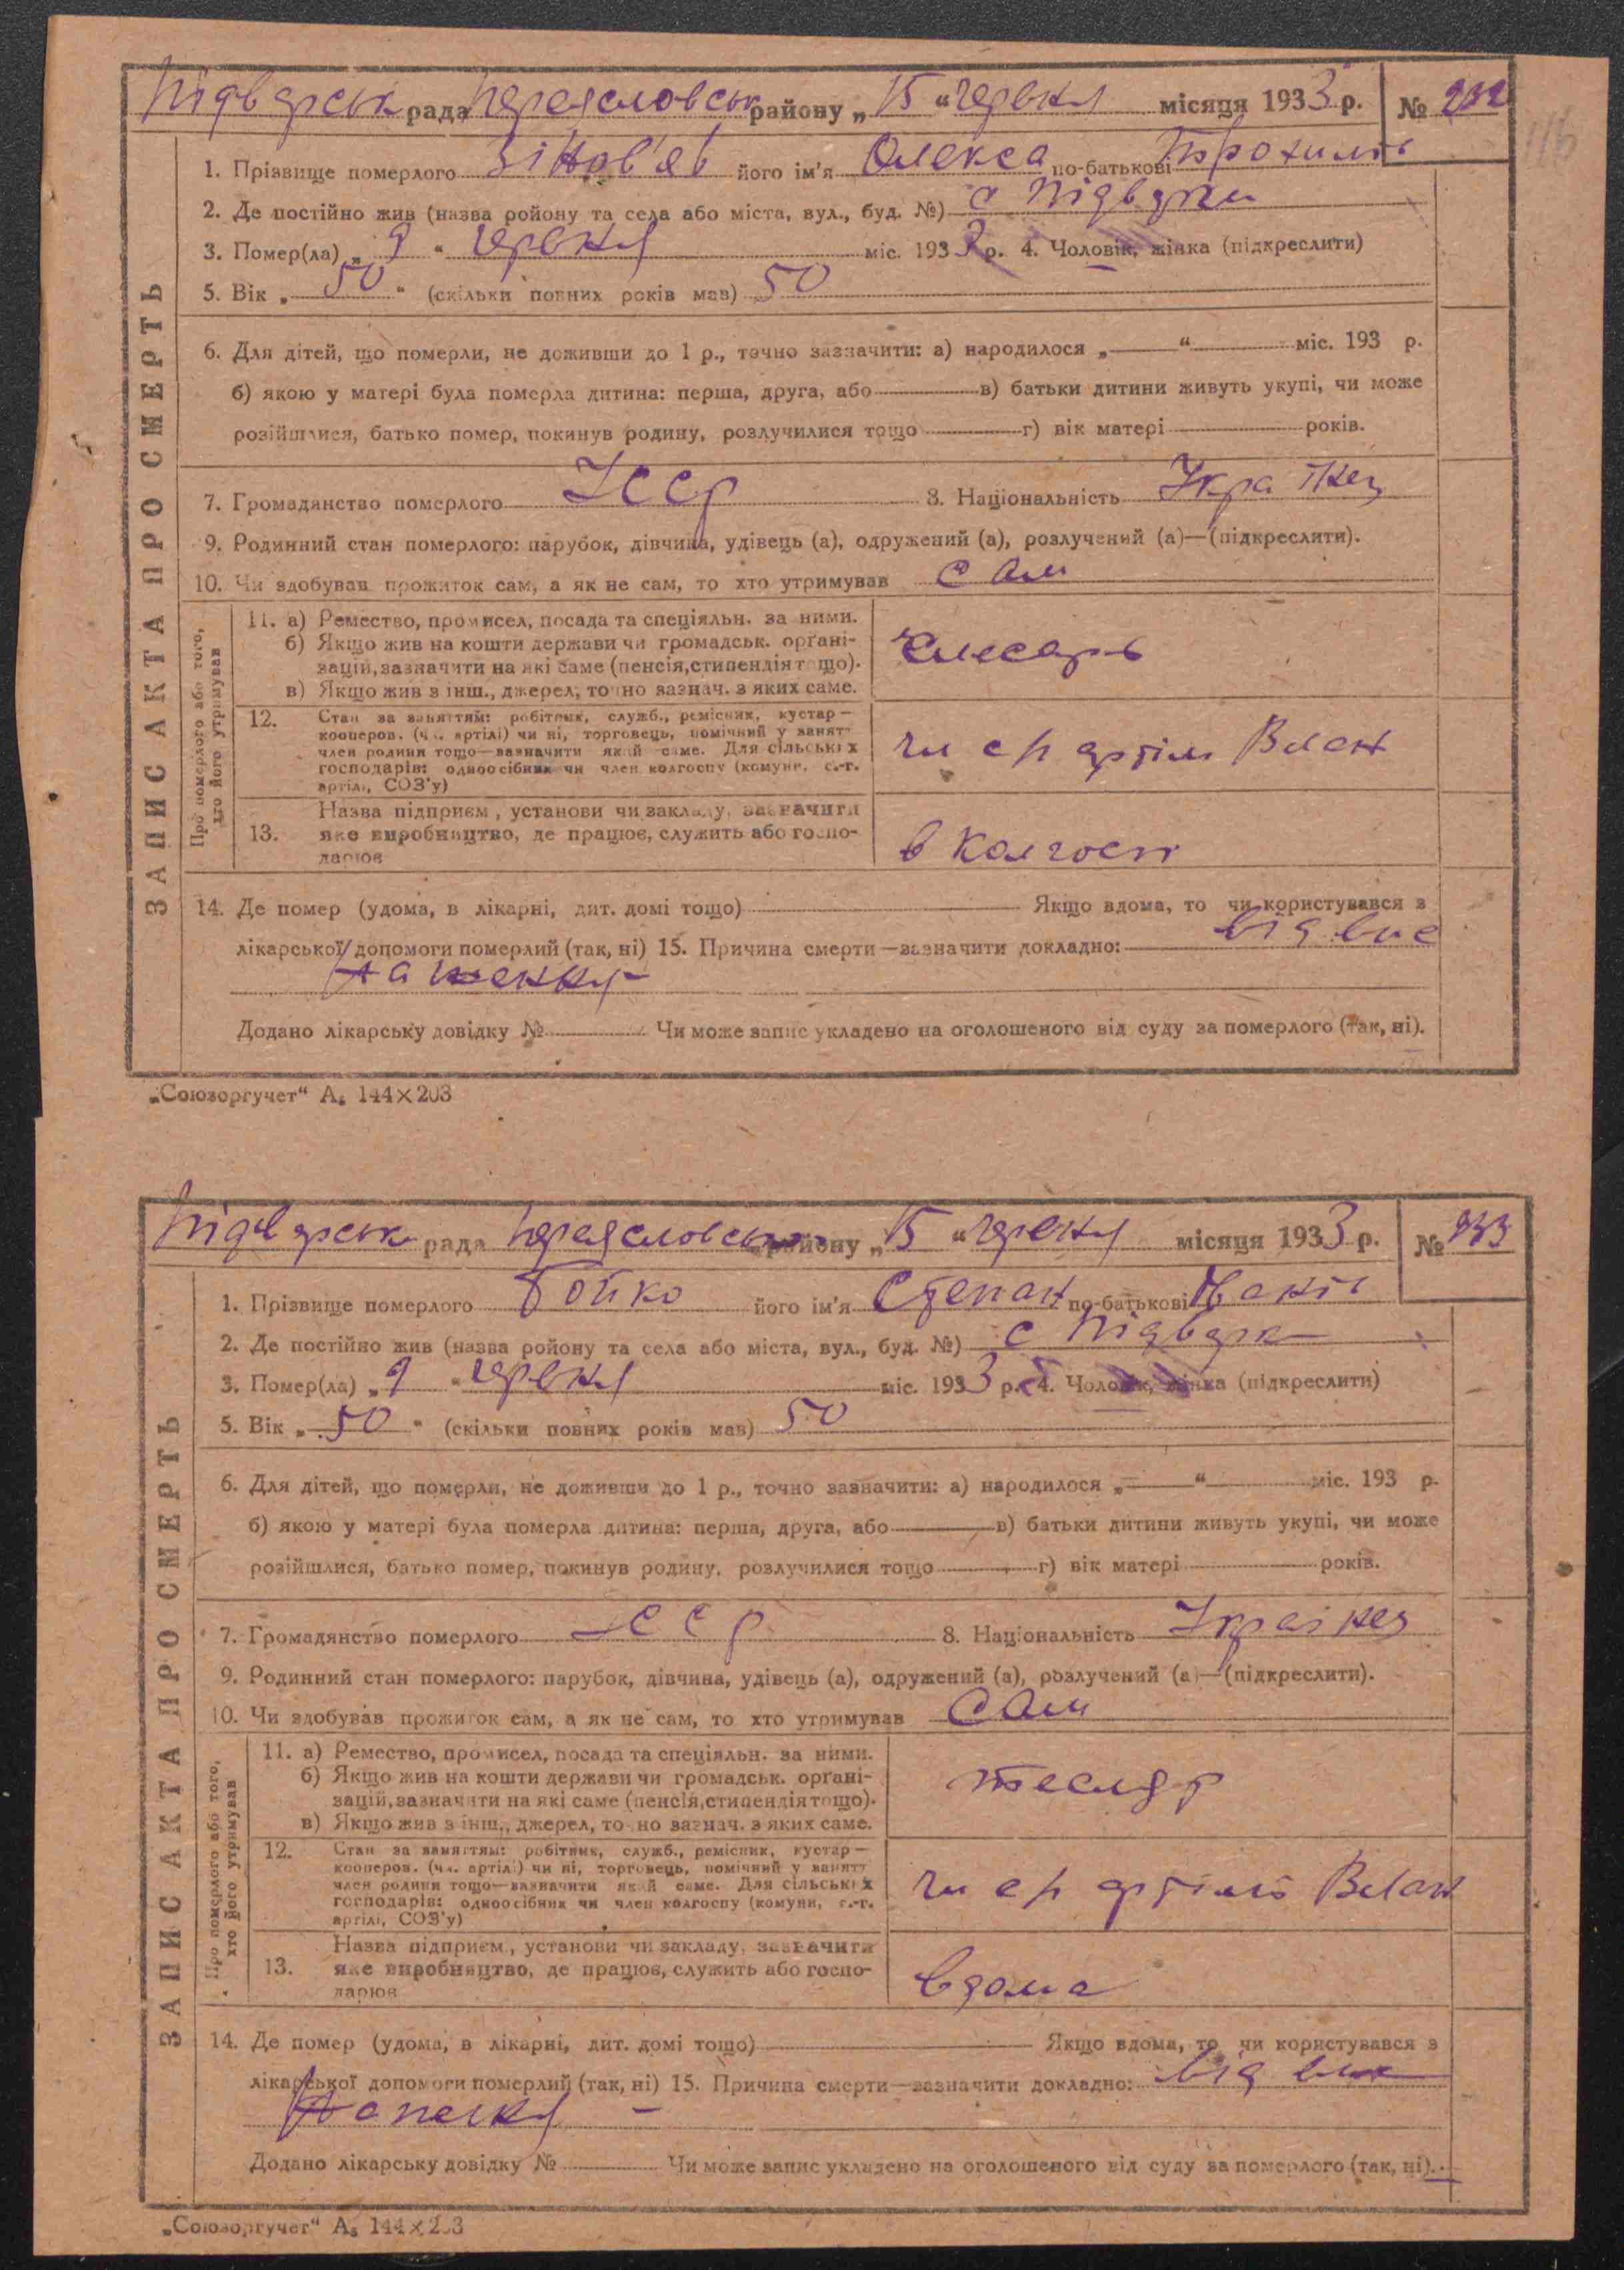 Підварськ рада Переясловськ району „ 15 “ червня місяця 1933 р. № 232
116
ЗАПИС АКТА ПРО СМЕРТЬ
1. Прізвище померлого Зінов'єв його ім'я Олекса по-батькові Трохимов
2. Де постійно жив (назва ройону та села або міста, вул., буд. №) с Підварки
3. Помер(ла) „ 9 “ червня міс. 1933 р. 4. Чоловік, жінка (підкреслити)
5. Вік „ 50 “ (скільки повних років мав) 50
6. Для дітей, що померли, не доживши до 1 р., точно зазначити: а) народилося „ “ міс. 193 р.
б) якою у матері була померла дитина: перша, друга, або в) батьки дитини живуть укупі, чи може
розійшлися, батько помер, покинув родину, розлучилися тощо г) вік матері років.
7. Громадянство померлого УССР 8. Національність Українец
9. Родинний стан померлого: парубок, дівчина, удівець (а), одружений (а), розлучений (а)—(підкреслити).
10. Чи здобував прожиток сам, а як не сам, то хто утримував сам
Про померлого або того, хто його утримував
11. а) Ремество, промисел, посада та спеціяльн. за ними.
б) Якщо жив на кошти держави чи громадськ. орґані-
зацій, зазначити на які саме (пенсія, стипендія тощо).
в) Якщо жив з інш., джерел, точно зазнач. з яких саме.
слесарь
12. Стан за заняттям: робітник, служб., ремісник, кустар—
кооперов. (чл. артілі) чи ні, торговець, помічний у занятт
член родини тощо—зазначити який саме. Для сільських
господарів: одноосібник чи член колгоспу (комуни, с.-г.
артілі, СОЗ'у)
чл с/г артілі
13. Назва підприєм., установи чи закладу, зазначити
яке виробництво, де працює, служить або госпо-
дарює
в колгосп
14. Де помер (удома, в лікарні, дит. домі тощо) Якщо вдома, то чи користувався з
лікарської допомоги померлий (так, ні) 15. Причина смерти—зазначити докладно: від вис
наження
Додано лікарську довідку № Чи може запис укладено на оголошеного від суду за померлого (так, ні).
„Союзоргучет“ А₅ 144×203
Підварськ рада Переясловськ району „ 15 “ червня місяця 1933 р. № 233
ЗАПИС АКТА ПРО СМЕРТЬ
1. Прізвище померлого Бойко його ім'я Степан по-батькові
2. Де постійно жив (назва ройону та села або міста, вул., буд. №) с Підварк
3. Помер(ла) „ 9 “ червня міс. 1933 р. 4. Чоловік, жінка (підкреслити)
5. Вік „ 50 “ (скільки повних років мав) 50
6. Для дітей, що померли, не доживши до 1 р., точно зазначити: а) народилося „ “ міс. 193 р.
б) якою у матері була померла дитина: перша, друга, або в) батьки дитини живуть укупі, чи може
розійшлися, батько помер, покинув родину, розлучилися тощо г) вік матері років.
7. Громадянство померлого УССР 8. Національність Українец
9. Родинний стан померлого: парубок, дівчина, удівець (а), одружений (а), розлучений (а)—(підкреслити).
10. Чи здобував прожиток сам, а як не сам, то хто утримував сам
Про померлого або того, хто його утримував
11. а) Ремество, промисел, посада та спеціяльн. за ними.
б) Якщо жив на кошти держави чи громадськ. орґані-
зацій, зазначити на які саме (пенсія, стипендія тощо).
в) Якщо жив з інш., джерел, точно зазнач. з яких саме.
тесляр
12. Стан за заняттям: робітник, служб., ремісник, кустар—
кооперов. (чл. артілі) чи ні, торговець, помічний у занятт
член родини тощо—зазначити який саме. Для сільських
господарів: одноосібник чи член колгоспу (комуни, с.-г.
артілі, СОЗ'у)
чл с/г артілі
13. Назва підприєм., установи чи закладу, зазначити
яке виробництво, де працює, служить або госпо-
дарює
вдома
14. Де помер (удома, в лікарні, дит. домі тощо) Якщо вдома, то чи користувався з
лікарської допомоги померлий (так, ні) 15. Причина смерти—зазначити докладно: від
Додано лікарську довідку № Чи може запис укладено на оголошеного від суду за померлого (так, ні).
„Союзоргучет“ А₅ 144×203